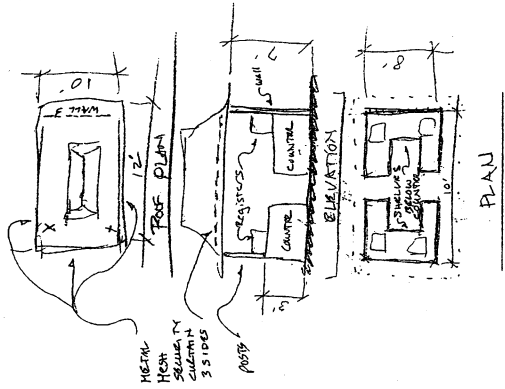 10'
WALL 3
12'
ROOF PLAN
METAL
MESH
SECURITY
CURTAIN
3 SIDES
POSTS
7'
wall
Registers
COUNTER
COUNTER
3'
ELEVATION
8'
SHELVES
BELOW
COUNTER
10'
PLAN